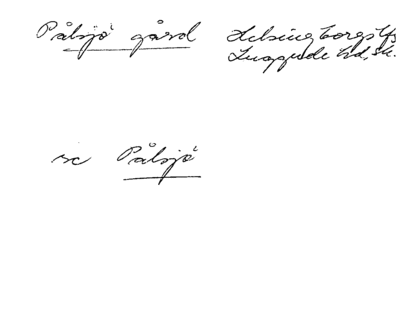 Pålsjö gård Helsingborgs lfs
Luggude hd, Sk.
se Pålsjö